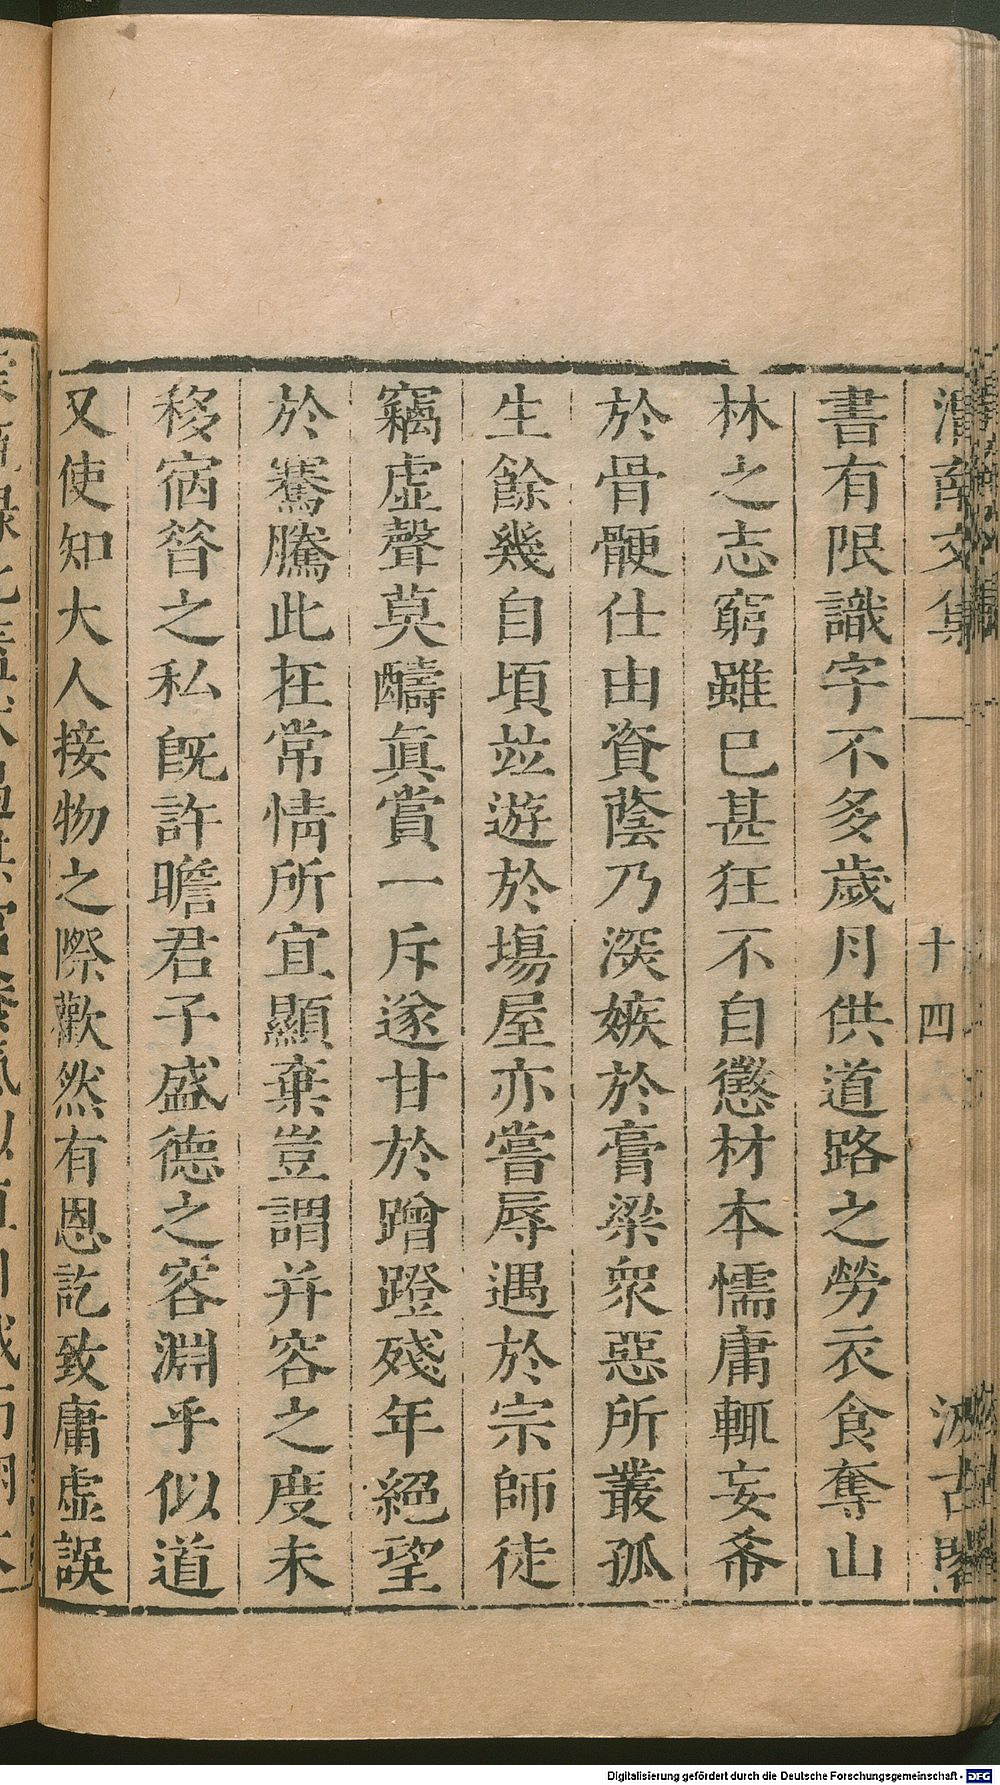 渭南文集 十四 汲古閣
書有限識字不多歲月供道路之勞衣食奪山
林之志窮雖已甚狂不自懲材本懦庸輒妄希
於骨骾仕由資蔭乃深嫉於膏梁衆惡所叢孤
生餘幾自頃竝遊於塲屋亦嘗辱遇於宗師徒
竊虛聲莫醻眞賞一斥遂甘於蹭蹬殘年絕望
於騫騰此在常情所宜顯棄豈謂并容之度未
移宿昝之私旣許瞻君子盛德之容淵乎似道
又使知大人接物之際歡然有恩訖致庸虛誤
Digitalisierung gefördert durch die Deutsche Forschungsgemeinschaft - DFG